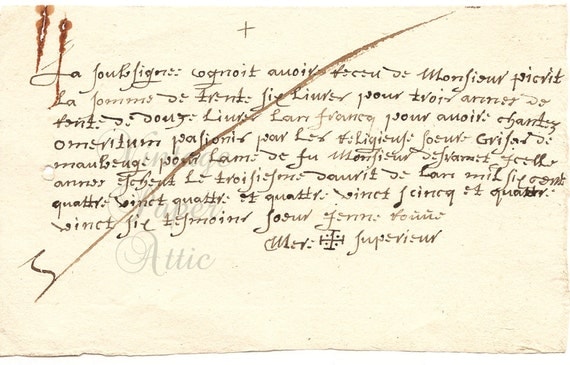 La soubsignee cognoit avoire receu de Monsieur picrit
La somme de trente six Livres pour trois annes de
Rente de douze Livres Lan francq pour avoire chantez
omeritum pasionis par les Religieuse soeure Grises de
maubeuge pour Lame de fu Monsieur desramet Jcelle
annes Escheut Le troisiesme dauvril de Lan mil six cent
quattre vinct quattre et quattre vinct scincq et quattre
vinct six tesmoins soeur Jenne
Mere superieur
Vintage
Paper
Attic